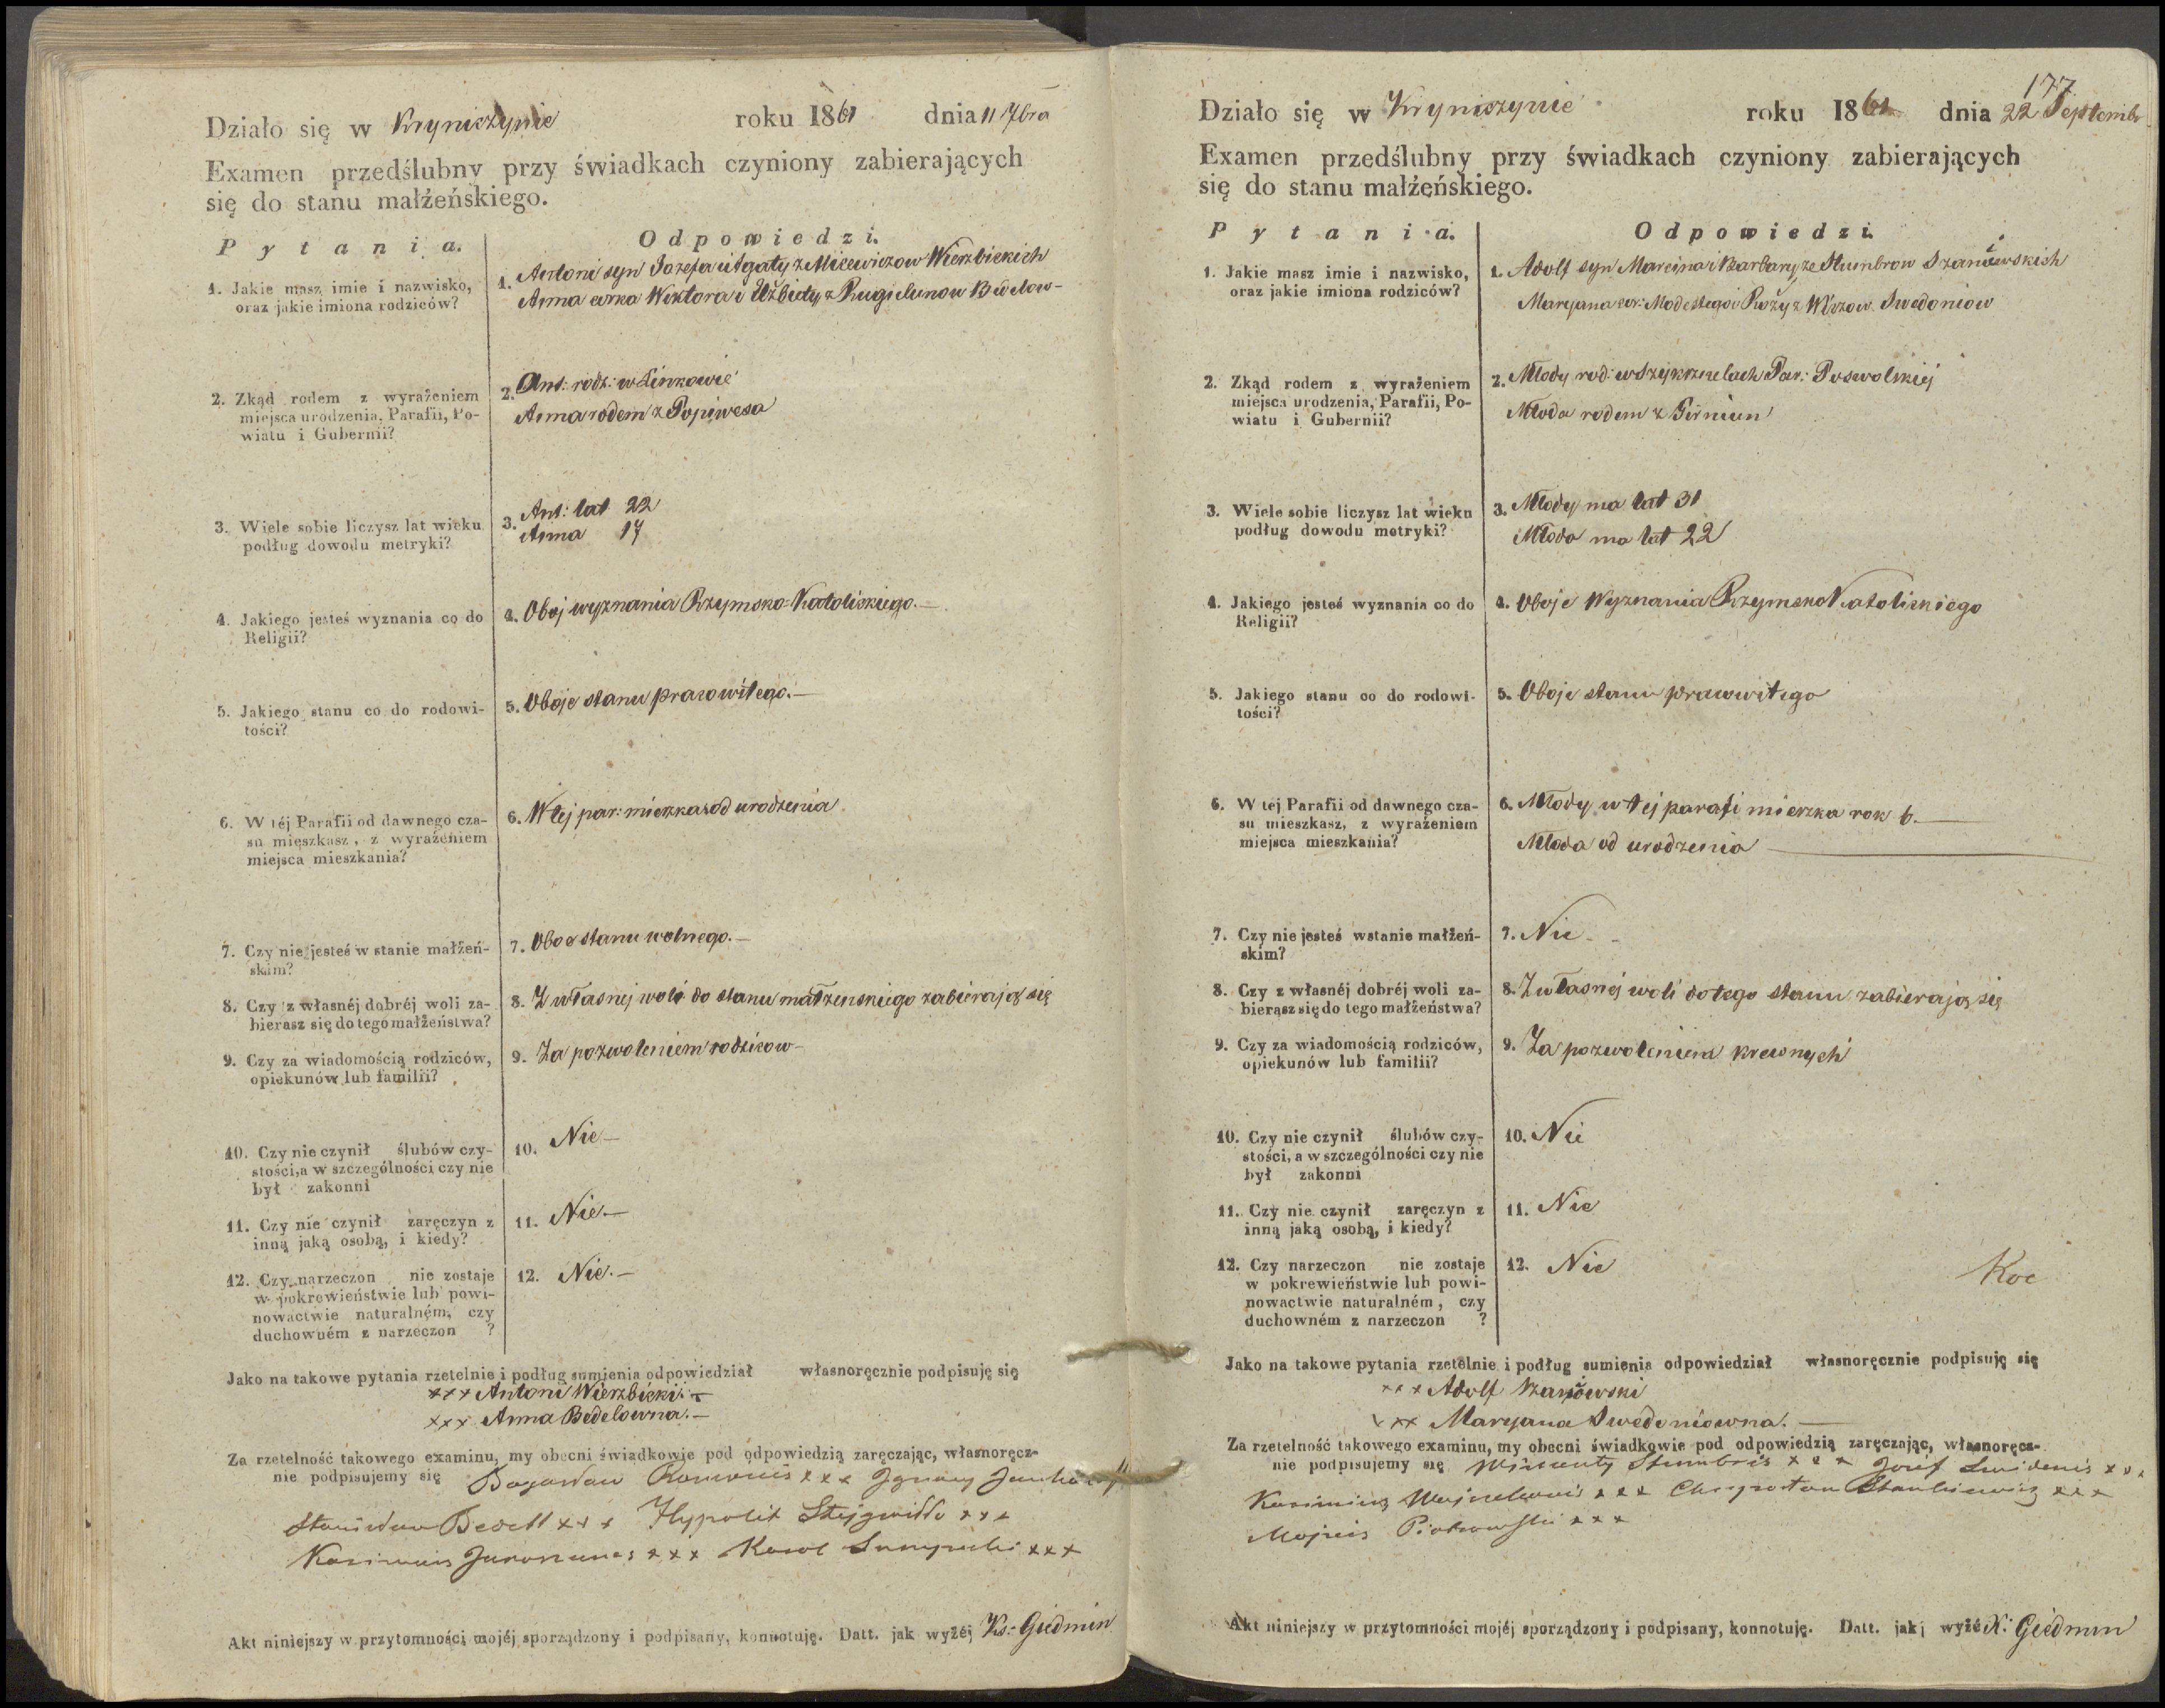 Działo się w Kryniczynie roku 1861 dnia 11 7bra
Examen przedślubny przy świadkach czyniony zabierających
się do stanu małżeńskiego.
Pytania. Odpowiedzi.
1. Jakie masz imie i nazwisko,
oraz jakie imiona rodziców?
1. Antoni syn Jozefa i Agaty z Micewiczow Wierzbickich
Anna curka Wiktora i Elżbiety z Rugielunow Bedelow-
2. Zkąd rodem z wyrażeniem
miejsca urodzenia, Parafii, Po-
wiatu i Gubernii?
2. Ant: rodz: w Linkowie
Anna rodem z Popiwesa
3. Wiele sobie liczysz lat wieku
podług dowodu metryki?
3. Ant: lat 22
Anna 17
4. Jakiego jesteś wyznania co do
Religii?
4. Oboj wyznania Rzymsko=Katolickiego.—
5. Jakiego stanu co do rodowi-
tości?
5. Oboje stanu pracowitego.—
6. W téj Parafii od dawnego cza-
su mieszkasz, z wyrażeniem
miejsca mieszkania?
6. W tej par: mieszka od urodzenia
7. Czy nie jesteś w stanie małżeń-
skim?
7. Oboe stanu wolnego.—
8. Czy z własnéj dobréj woli za-
bierasz się do tego małżeństwa?
8. Z własnej woli do stanu małzenskiego zabierają się
9. Czy za wiadomością rodziców,
opiekunów lub familii?
9. Za pozwoleniem rodzicow—
10. Czy nie czynił ślubów czy-
stości, a w szczególności czy nie
był zakonni
10. Nie—
11. Czy nie czynił zaręczyn z
inną jaką osobą, i kiedy?
11. Nie.—
12. Czy narzeczon nie zostaje
w pokrewieństwie lub powi-
nowactwie naturalném, czy
duchowném z narzeczon ?
12. Nie.—
Jako na takowe pytania rzetelnie i podług sumienia odpowiedział własnoręcznie podpisuję się
xxx Antoni Wierzbicki.—
xxx Anna Bedelowna.—
Za rzetelność takowego examinu, my obecni świadkowie pod odpowiedzią zaręczając, własnoręcz-
nie podpisujemy się xxx Ignacy
Stanisław Bedell xxx Hypolit Stejgwiłło xxx
Kazimierz xxx Karol xxx
Akt niniejszy w przytomności mojéj sporządzony i podpisany, konnotuję. Datt. jak wyżéj Ks: Giedmin
177
Działo się w Kryniczynie roku 1861 dnia 22 Septembr
Examen przedślubny przy świadkach czyniony zabierających
się do stanu małżeńskiego.
Pytania. Odpowiedzi.
1. Jakie masz imie i nazwisko,
oraz jakie imiona rodziców?
1. Adolf syn Marcina i Barbary ze Stumbrow Szanowskich
Maryana cor: Modestego i Rozy z Wirzow Swedoniow
2. Zkąd rodem z wyrażeniem
miejsca urodzenia, Parafii, Po-
wiatu i Gubernii?
2. Młody rod: w Par: Poswolskiej
Młoda rodem z Girniun
3. Wiele sobie liczysz lat wieku
podług dowodu metryki?
3. Młody ma lat 31
Młoda ma lat 22
4. Jakiego jesteś wyznania co do
Religii?
4. Oboje Wyznania Rzymsko Katolickiego
5. Jakiego stanu co do rodowi-
tości?
5. Oboje stanu pracowitego
6. W téj Parafii od dawnego cza-
su mieszkasz, z wyrażeniem
miejsca mieszkania?
6. Młody w tej parafi mieszka rok 6.—
Młoda od urodzenia —
7. Czy nie jesteś wstanie małżeń-
skim?
7. Nie - -
8. Czy z własnéj dobréj woli za-
bierąsz się do tego małżeństwa?
8. Z własnej woli do tego stanu zabierają się
9. Czy za wiadomością rodziców,
opiekunów lub familii?
9. Za pozwoleniem krewnych
10. Czy nie czynił ślubów czy-
stości, a w szczególności czy nie
był zakonni
10. Nie
11. Czy nie czynił zaręczyn z
inną jaką osobą, i kiedy?
11. Nie
12. Czy narzeczon nie zostaje
w pokrewieństwie lub powi-
nowactwie naturalném, czy
duchowném z narzeczon ?
12. Nie
Koc
Jako na takowe pytania rzetelnie i podług sumienia odpowiedział własnoręcznie podpisuję się
xxx Adolf Szanowski
xxx Maryana Swedoniowna.—
Za rzetelność takowego examinu, my obecni świadkowie pod odpowiedzią zaręczając, własnoręcz-
nie podpisujemy się Wincenty Stumbris xxx Jozef xxx
Kazimierz xxx Chryzostom Stankiewicz xxx
Mojzis Piotrowski xxx
Akt niniejszy w przytomności mojéj sporządzony i podpisany, konnotuję. Datt. jakj wyżé X: Giedmin